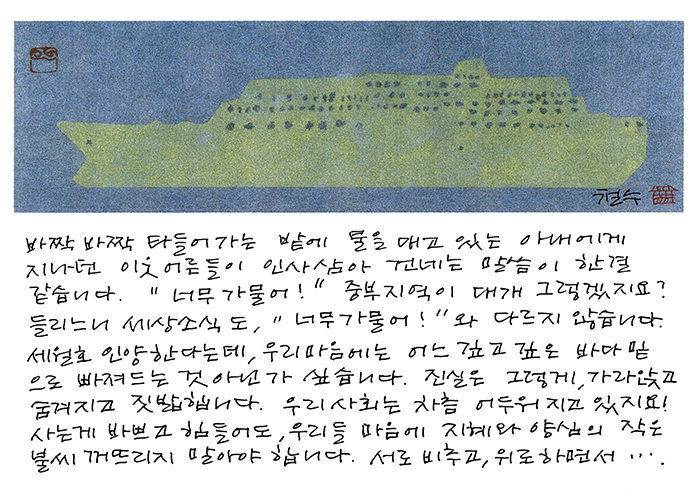 철수
바짝 바짝 타들어가는 밭에 물을 대고 있는 아내에게
지나던 이웃어른들이 인사삼아 건네는 말씀이 한결
같습니다. "너무 가물어!" 중부지역이 대개 그렇겠지요?
들리느니 세상소식도, "너무 가물어!"와 다르지 않습니다.
세월호 인양한다는데, 우리마음에는 어느 깊고 깊은 바다 밑
으로 빠져드는 것 아닌가 싶습니다. 진실은 그렇게, 가라앉고
숨겨지고 짓밟힙니다. 우리 사회는 차츰 어두워지고 있지요!
사는게 바쁘고 힘들어도, 우리들 마음에 지혜와 양심의 작은
불씨 꺼뜨리지 말아야 합니다. 서로 비추고, 위로하면서 ….